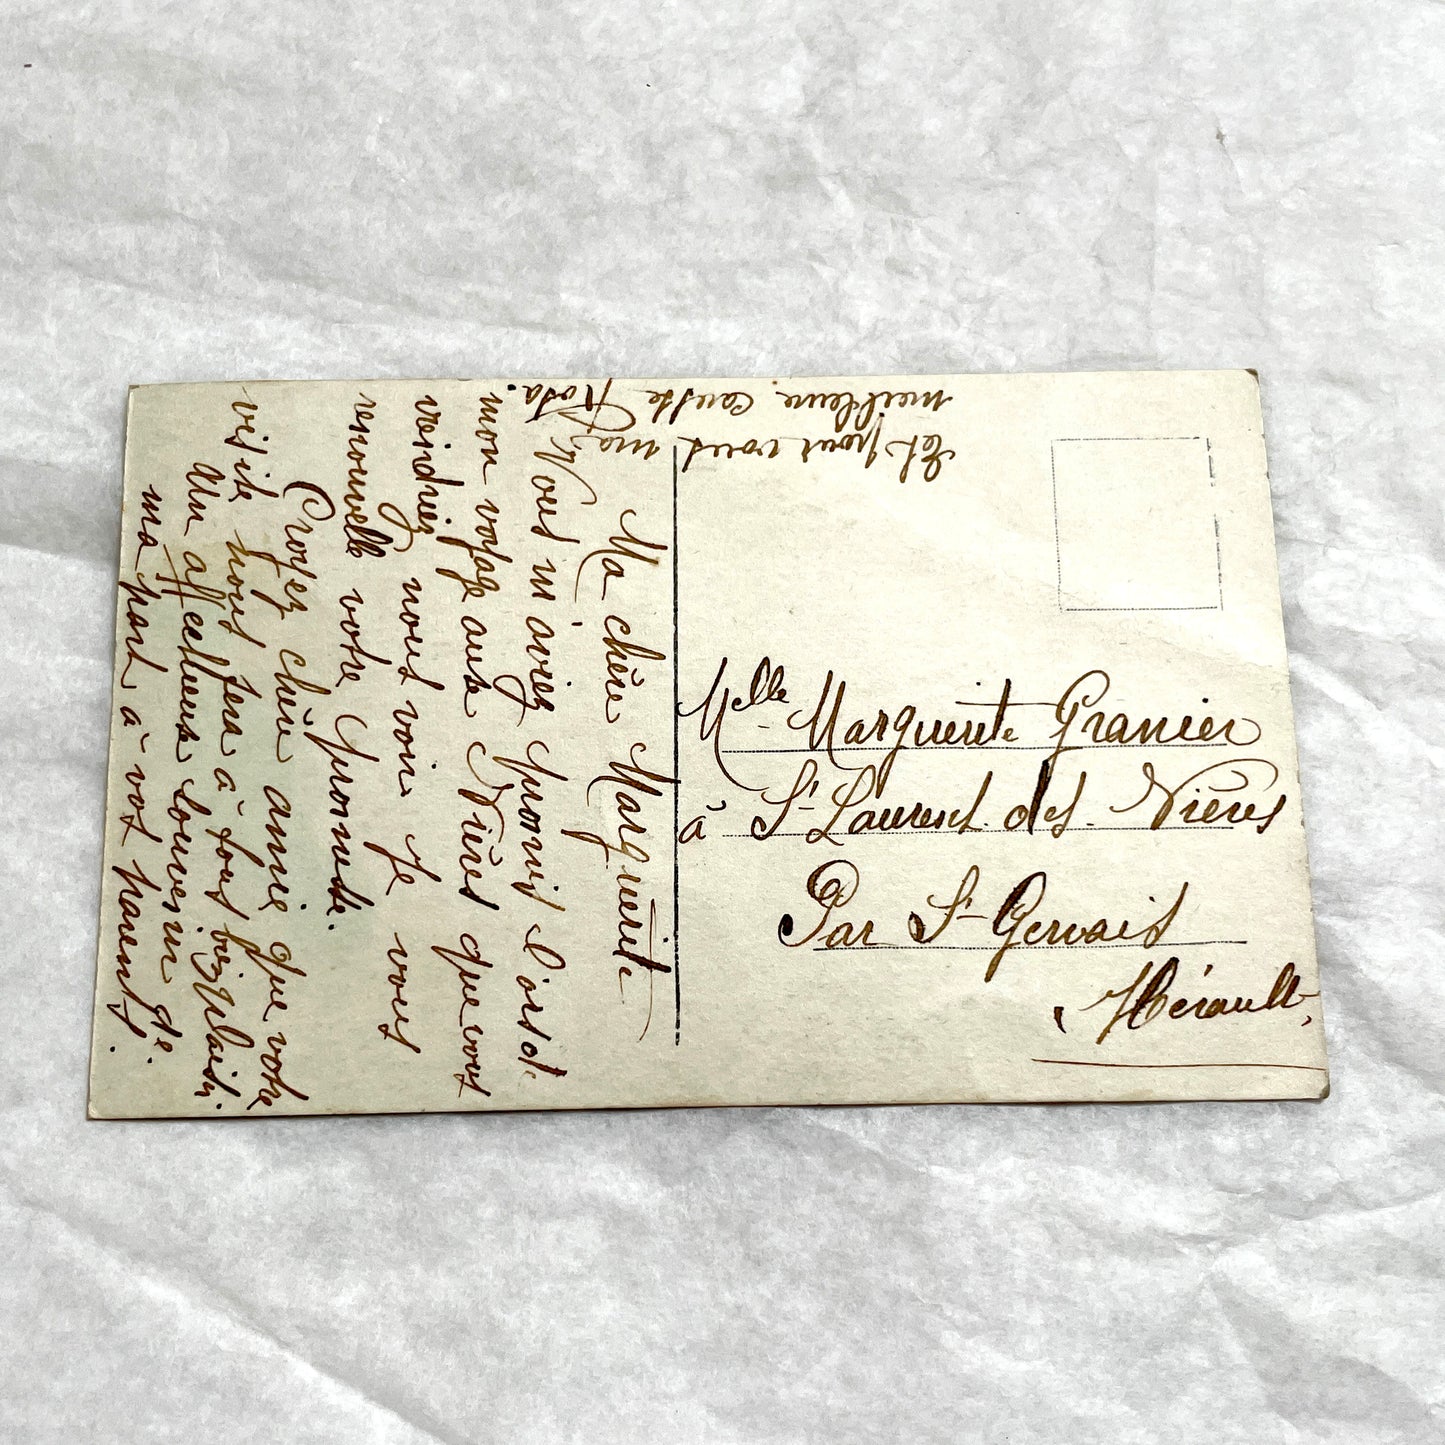 Ma chère Marguerite
Vous m'aviez promis l'orsde
mon voyage aute Nières que vous
viendriez nous voir je vous
renouvelle votre promete.
Croyez chère amie que votre
visite nous fera à tous biz plaisir.
Un affectueux souvenir de
ma part à vos parents.
Et pour vous ma
meilleure
Rosa.
Melle Marguerite Granier
à St Laurent des Nières
Par St Gervais
Hérault